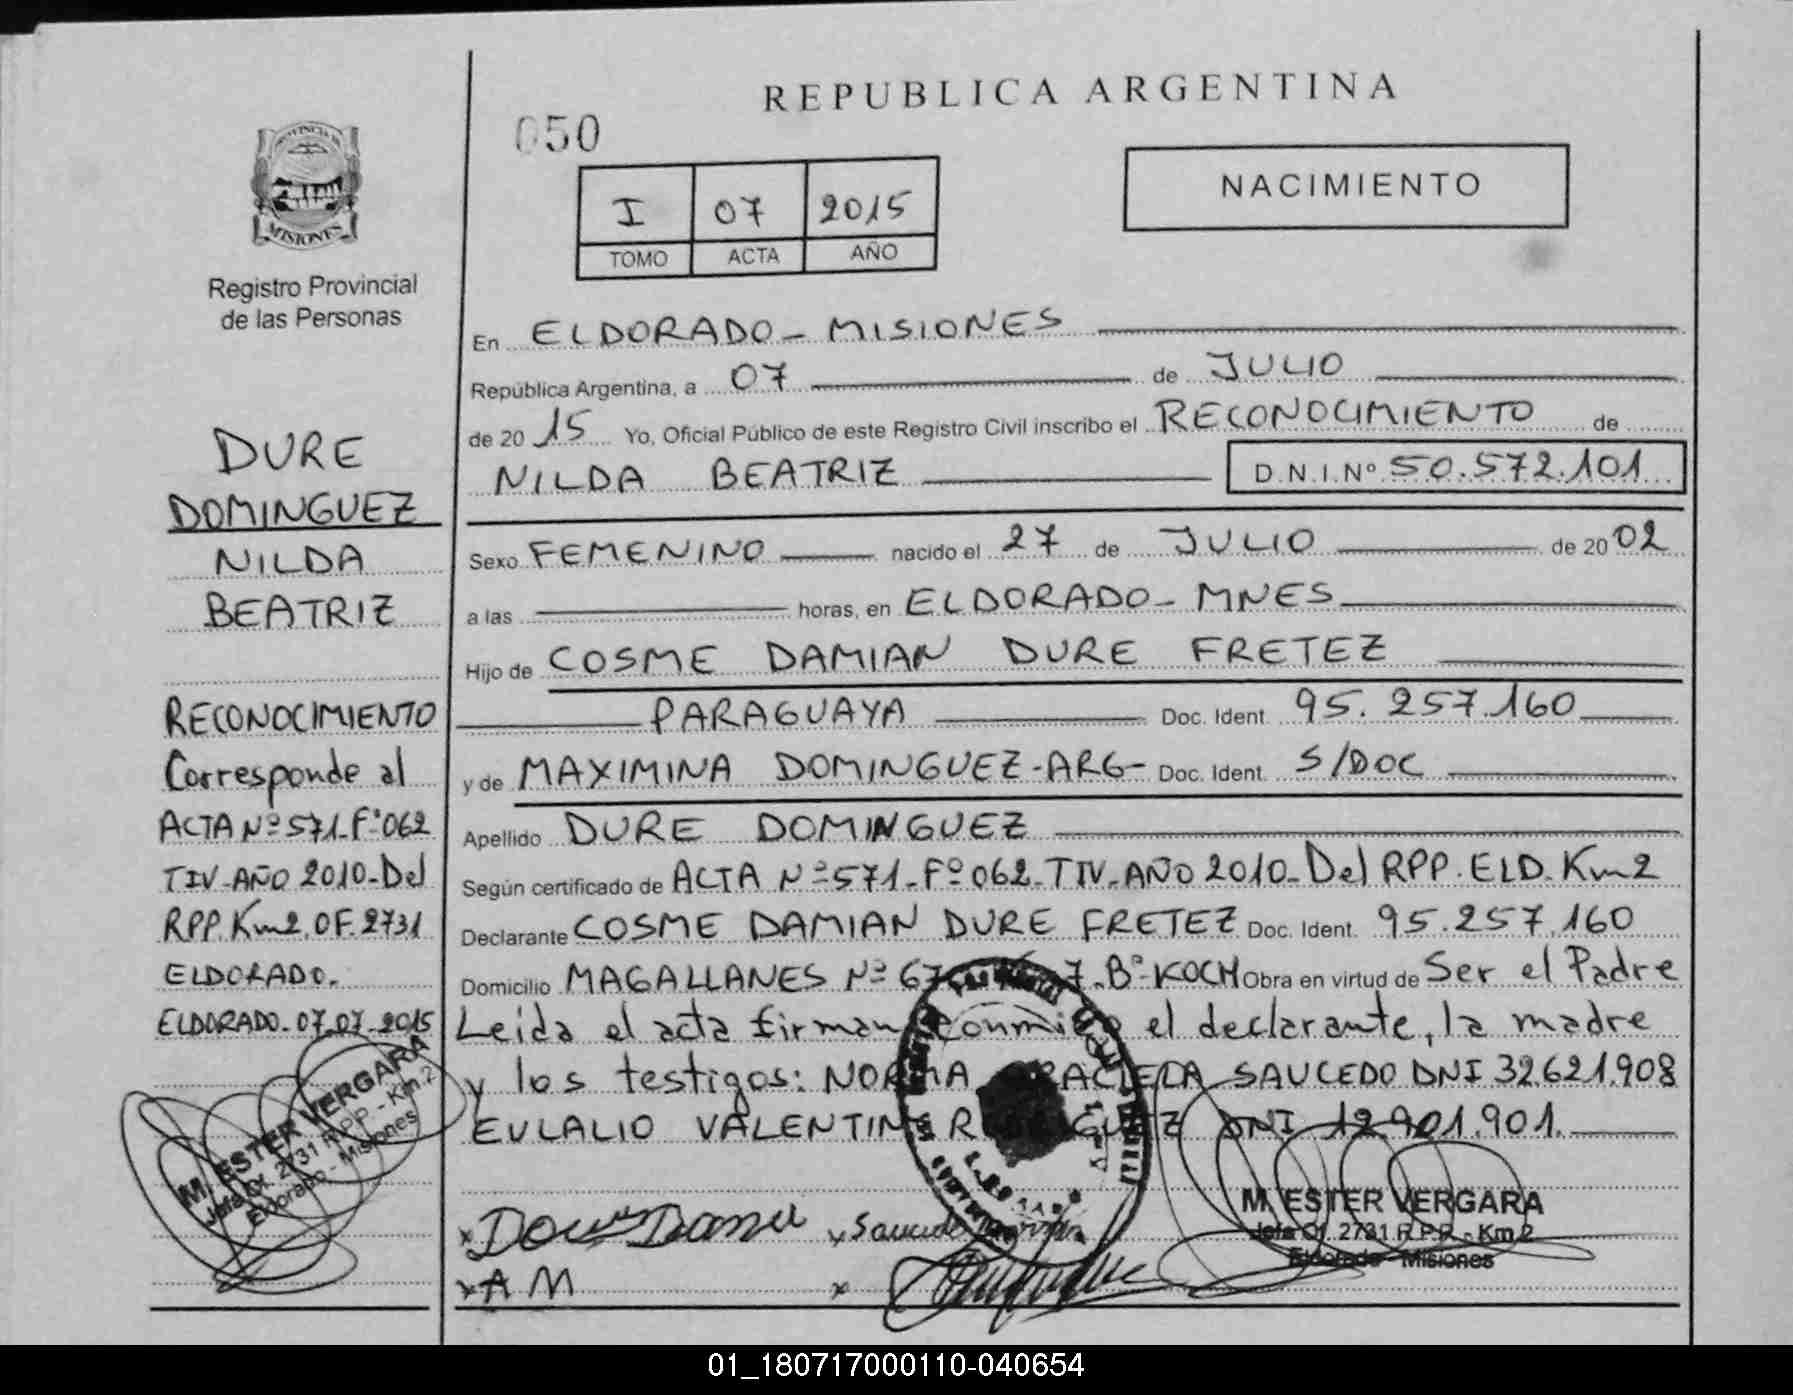 REPUBLICA ARGENTINA
050
NACIMIENTO
I 07 2015
TOMO ACTA AÑO
PROVINCIA DE
MISIONES
Registro Provincial
de las Personas
DURE
DOMINGUEZ
NILDA
BEATRIZ
RECONOCIMIENTO
Corresponde al
ACTA Nº 571-Fº 062
TIV-AÑO 2010-Del
RPP. Km2. OF. 2731
ELDORADO.
ELDORADO-07-07-2015
M. ESTER VERGARA
Jefa Of. 2731 R.P.P. - Km 2
Eldorado - Misiones
En ELDORADO - MISIONES
República Argentina, a 07 de JULIO
de 2015 Yo, Oficial Público de este Registro Civil inscribo el RECONOCIMIENTO de
NILDA BEATRIZ D.N.I.Nº 50.572.101
Sexo FEMENINO nacido el 27 de JULIO de 2002
a las horas, en ELDORADO - MNES
Hijo de COSME DAMIAN DURE FRETEZ
PARAGUAYA Doc. Ident. 95.257.160
y de MAXIMINA DOMINGUEZ-ARG- Doc. Ident. S/DOC
Apellido DURE DOMINGUEZ
Según certificado de ACTA Nº 571-Fº 062-TIV-AÑO 2010-Del RPP. ELD. Km2
Declarante COSME DAMIAN DURE FRETEZ Doc. Ident. 95.257.160
Domicilio MAGALLANES Nº Bº-KOCH Obra en virtud de Ser el Padre
Leida el acta firman conmigo el declarante, la madre
y los testigos: NORMA GRACIELA SAUCEDO DNI 32.621.908
EULALIO VALENTIN RODRIGUEZ DNI 12.901.901.
x x
x A M x
M. ESTER VERGARA
Jefa Of. 2731 R.P.P. - Km 2
Eldorado - Misiones
01_180717000110-040654